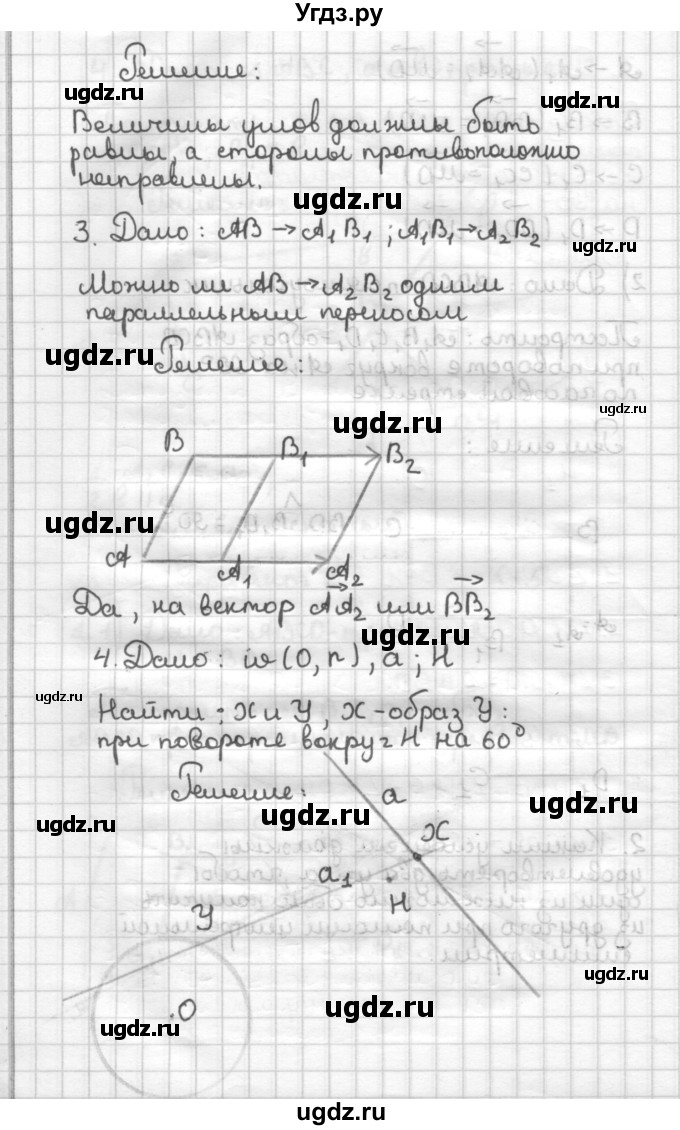 Угдз.ру
Решение:
ugdz.ru
ugdz.ru
Величины углов должны быть
равны, а стороны противоположно
направлены.
ugdz.ru
3. Дано: AB → A₁B₁; A₁B₁ → A₂B₂
ugdz.ru
Можно ли AB → A₂B₂ одним
параллельным переносом
ugdz.ru
Решение:
ugdz.ru
ugdz.ru
B B₁ B₂
ugdz.ru
A A₁ A₂
Да, на вектор AA₂ или BB₂
ugdz.ru
4. Дано: w(O, r), a; H
ugdz.ru
Найти: X и Y, X-образ Y:
при повороте вокруг H на 60°
Решение:
a
ugdz.ru
ugdz.ru
ugdz.ru
X
a₁
H
Y
ugdz.ru
O
ugdz.ru
ugdz.ru
ugdz.ru